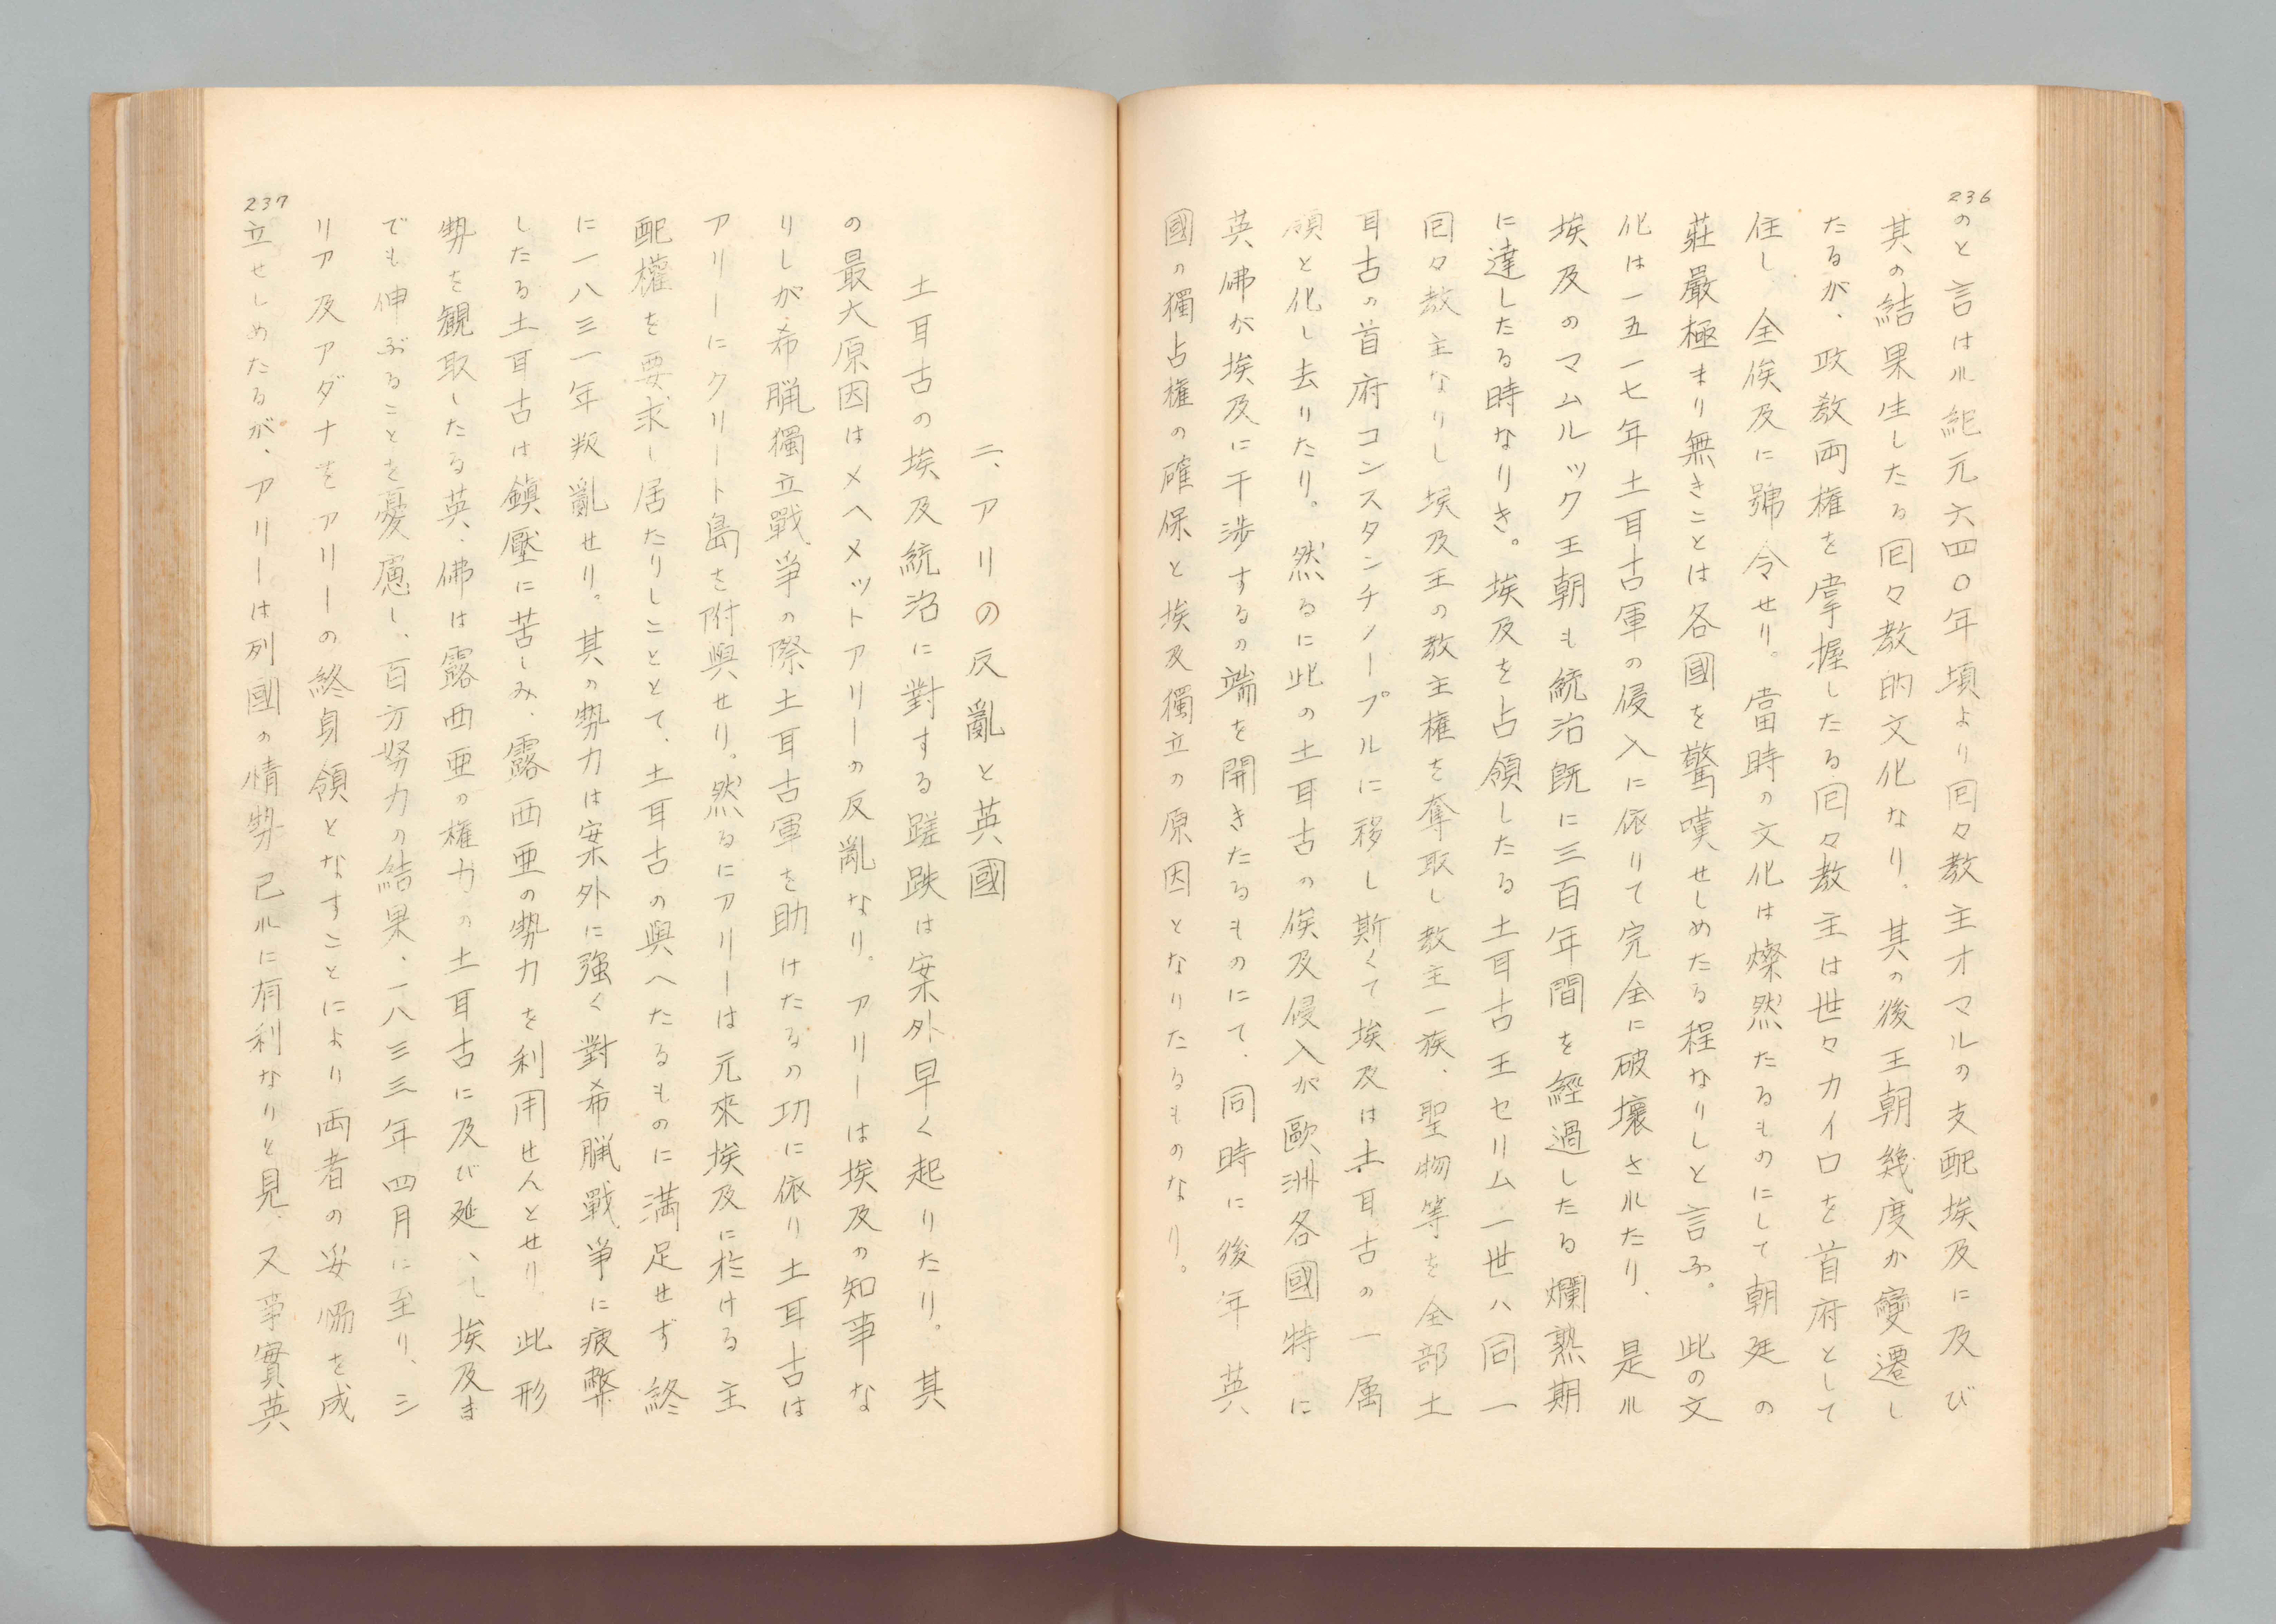 236
のと言はれ紀元六四〇年頃より囘々教主オマルの支配埃及に及び
其の結果生したる囘々教的文化なり。其の後王朝幾度か變遷し
たるが、政教両権を掌握したる囘々教主は世々カイロを首府として
住し、全俟及に號令せり。當時の文化は燦然たるものにして朝廷の
莊嚴極まり無きことは各國を驚嘆せしめたる程なりしと言ふ。此の文
化は一五一七年土耳古軍の侵入に依りて完全に破壞されたり、是れ
埃及のマムルック王朝も統治既に三百年間を經過したる爛熟期
に達したる時なりき。埃及を占領したる土耳古王セリム一世ハ同一
囘々教主なりし埃及王の教主権を奪取し教主一族、聖物等を全部土
耳古の首府コンスタンチノープルに移し斯くて埃及は土耳古の一属
領と化し去りたり。然るに此の土耳古の俟及侵入が歐洲各國特に
英佛が埃及に干渉するの端を開きたるものにて、同時に後年英
國の獨占権の確保と埃及獨立の原因となりたるものなり。
二、アリの反亂と英國
土耳古の埃及統治に對する蹉跌は案外早く起りたり。其
の最大原因はメヘメットアリーの反亂なり。アリーは埃及の知事な
りしが希臘獨立戰爭の際土耳古軍を助けたるの功に依り土耳古は
アリーにクリート島を附與せり。然るにアリーは元來埃及に於ける主
配權を要求し居たりしことて、土耳古の與へたるものに満足せず終
に一八三一年叛亂せり。其の勢力は案外に強く對希臘戰爭に疲弊
したる土耳古は鎭壓に苦しみ、露西亜の勢力を利用せんとせり。此形
勢を観取したる英、佛は露西亜の権力の土耳古に及び延、し埃及ま
でも伸ぶることを憂慮し、百方努力の結果、一八三三年四月に至り、シ
リア及アダナをアリーの終身領となすことにより両者の妥協を成
237
立せしめたるが、アリーは列國の情勢己れに有利なりと見、又事實英